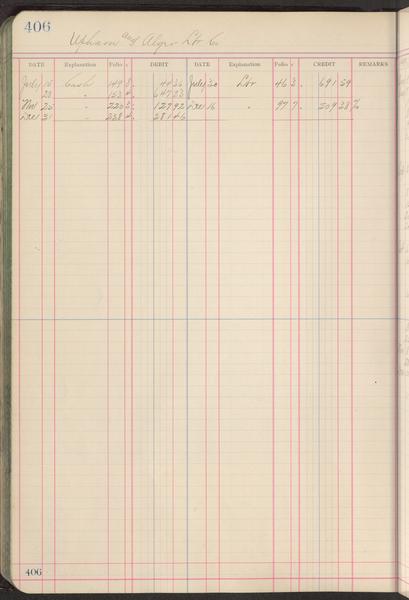 406
Upham and Algro Lbr Co
DATE Explanation Folio DEBIT DATE Explanation Folio CREDIT REMARKS
July 15 Cash 149 44 36 July 20 Lbr 46 691 59
20 " 152 647 23
Nov 25 " 220 127 92 Dec 16 " 97 209 38 %
Dec 31 " 238 281 46
406